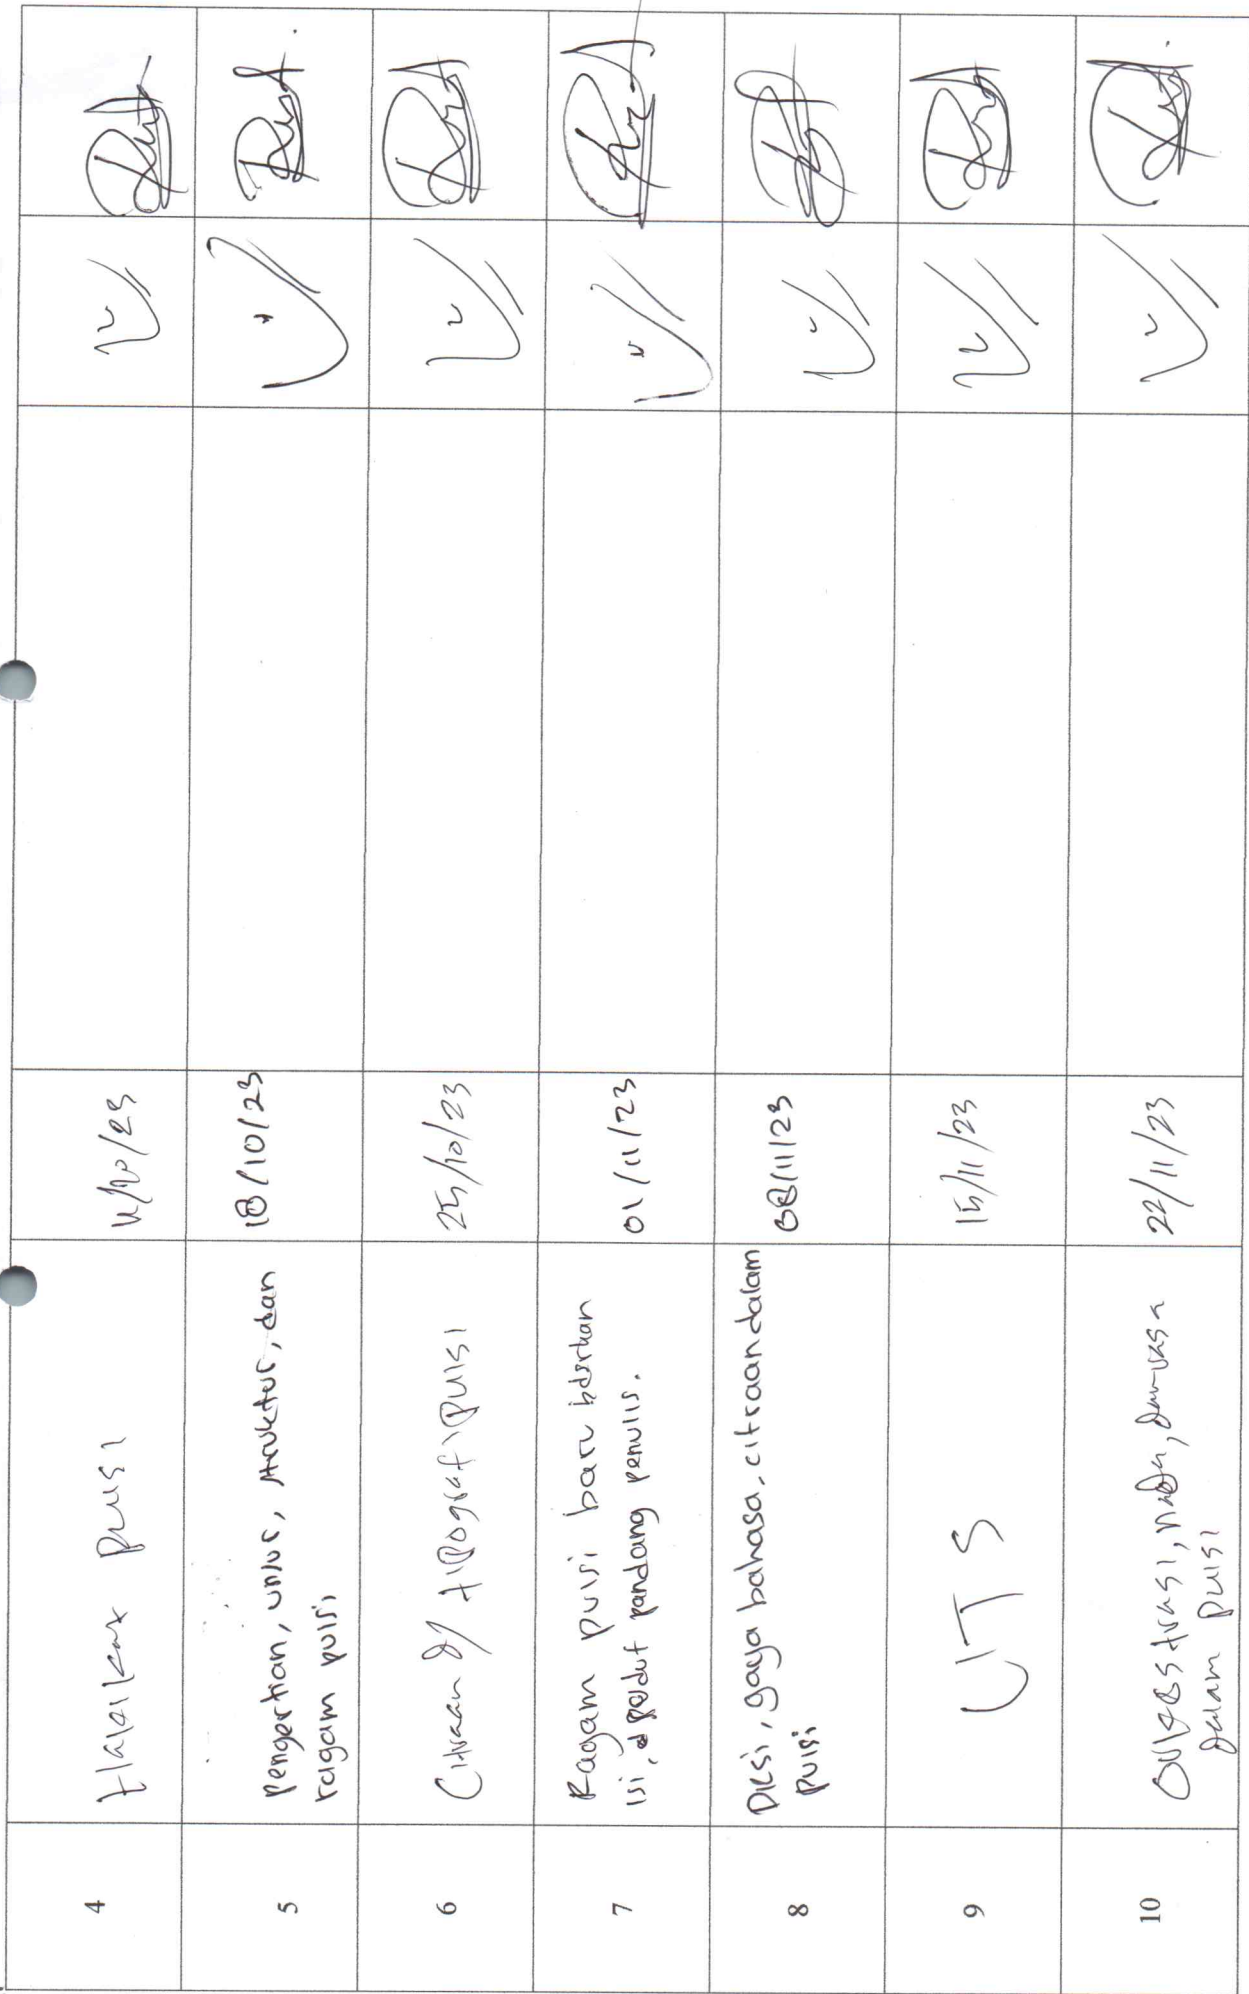 4
Hakikat puisi
11/10/23
5
pengertian, unsur, struktur, dan
ragam puisi
18/10/23
6
Citraan & tipografi puisi
25/10/23
7
Ragam puisi baru
isi, sudut pandang penulis.
01/11/23
8
Diksi, gaya bahasa, citraan dalam
puisi
08/11/23
9
UTS
15/11/23
10
nada, dan
dalam puisi
22/11/23